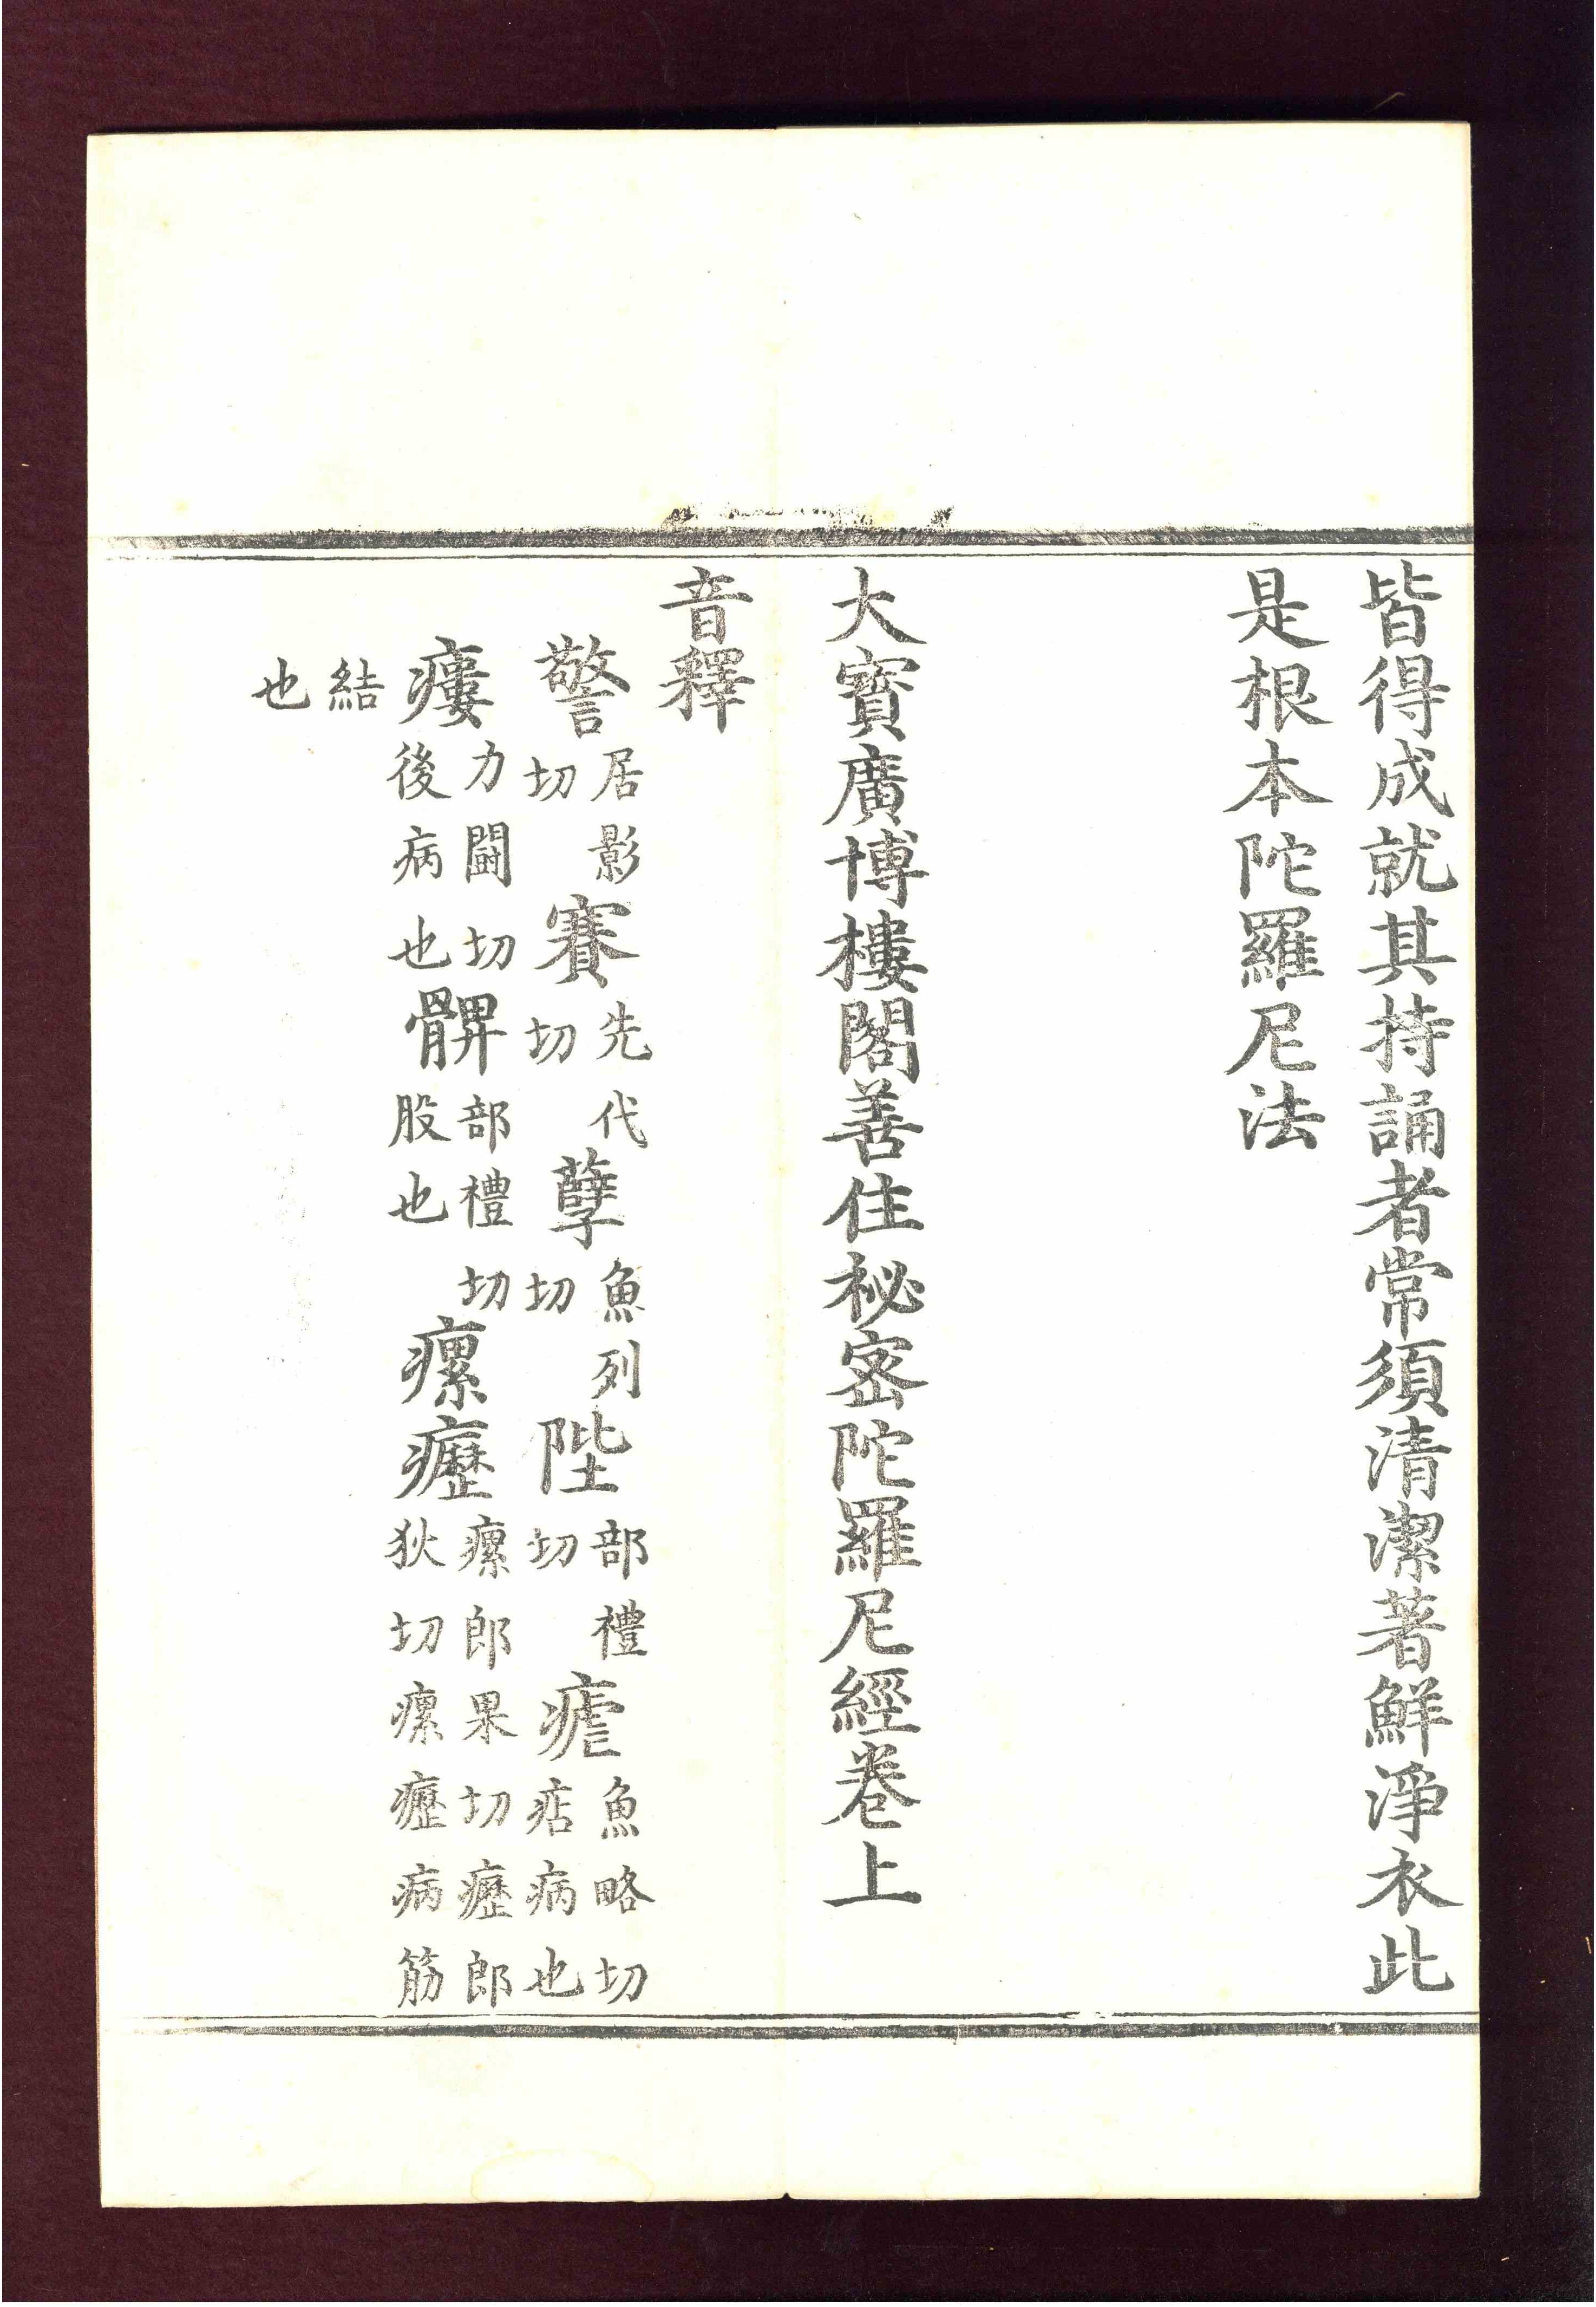 皆得成就其持誦者常須清潔著鮮淨衣此
是根本陀羅尼法
大寶廣博樓閣善住祕密陀羅尼經卷上
音釋
警居影切賽先代切孽魚列切陛部禮切瘧魚略切痁病也
瘻力鬪切後病也髀部禮切股也瘰癧瘰郎果切癧郎狄切瘰癧病筋
結也